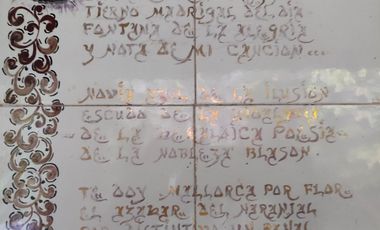 TIERNO MADRIGAL DEL DIA
FONTANA DE LA ALEGRIA
Y NOTA DE MI CANCION...
NOVIA AZUL DE LA ILUSION
ESCUDO DE LA
DE LA HERALDICA POESIA
DE LA NOBLEZA BLASON.
TE DOY MALLORCA POR FLOR
EL AZAHAR DEL NARANJAL
UN PANAL